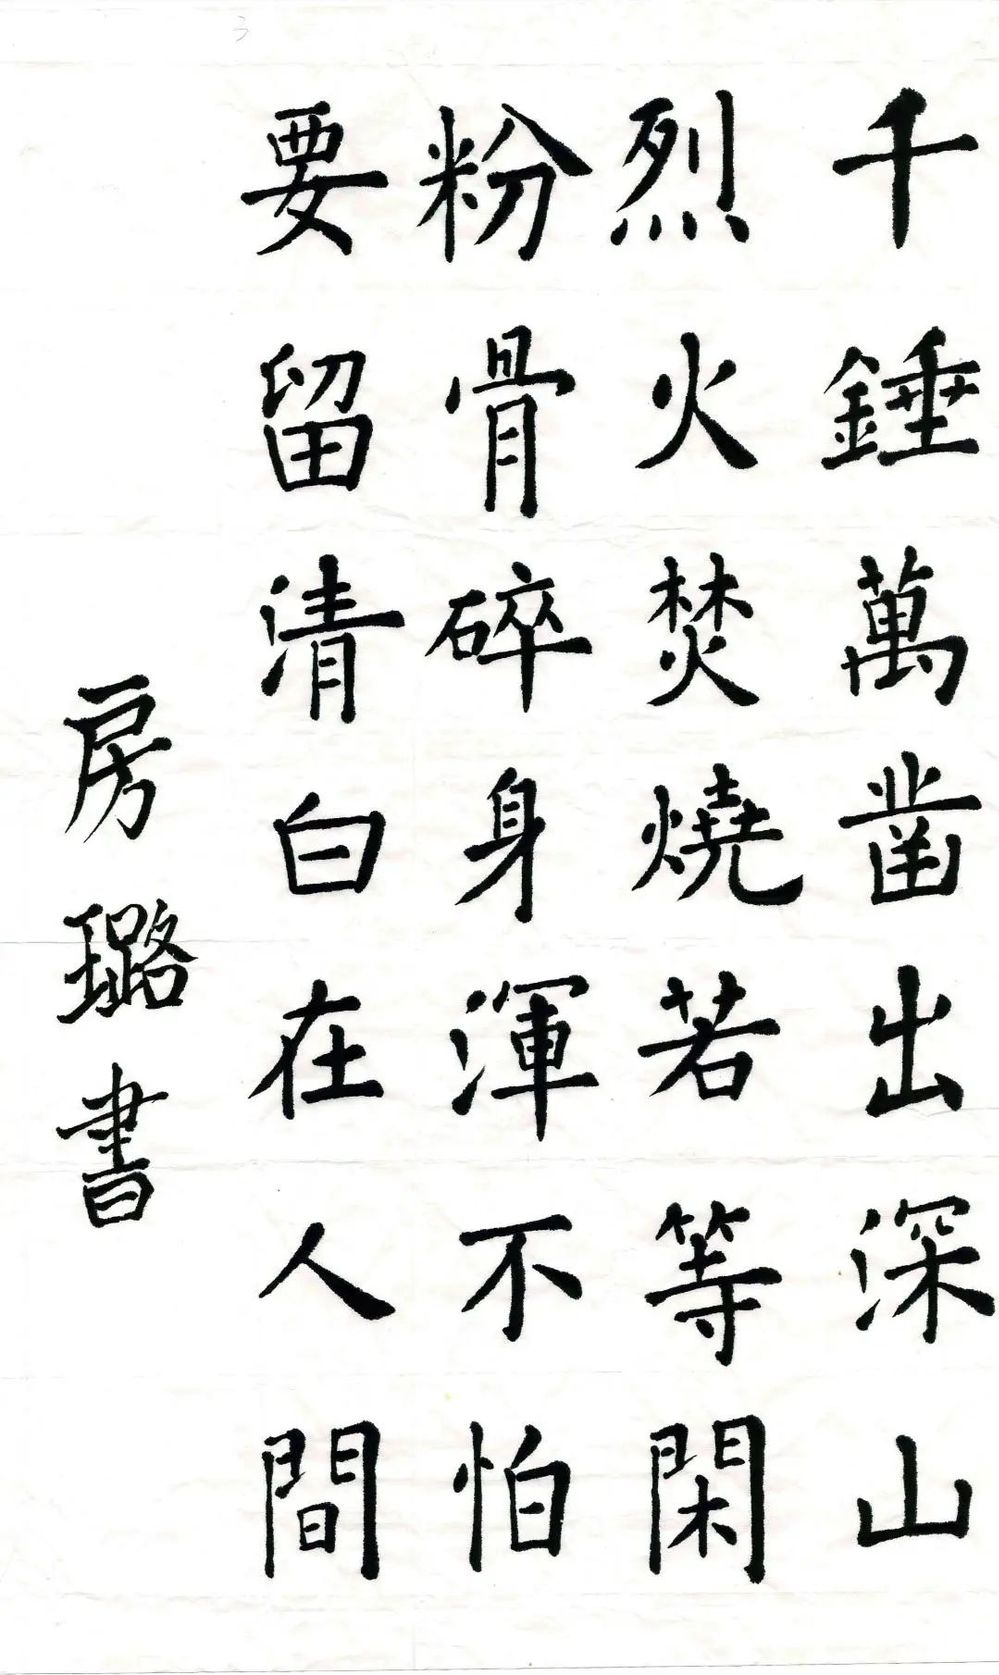 千錘萬凿出深山
烈火焚燒若等閑
粉骨碎身渾不怕
要留清白在人間
房璐書